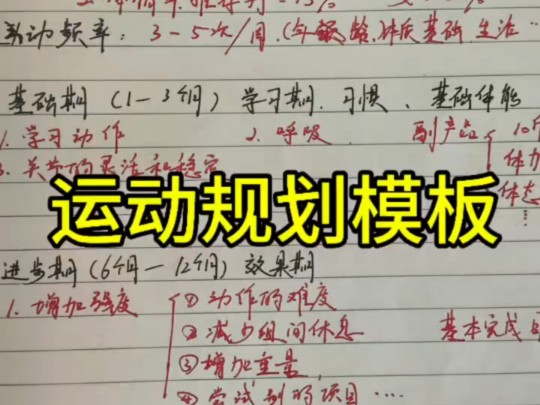 运动频率：3-5次/周.(年龄.体质基础.生活…
基础期（1-3个月）学习期.习惯、基础体能
1.学习动作 2.呼吸 副产品 10个
3.关节的灵活和稳定 体力
体态
运动规划模板
进步期（6个月-12个月）效果期
1.增加强度 ①动作的难度
②减少组间休息 基本完成
③增加重量
④尝试别的项目…